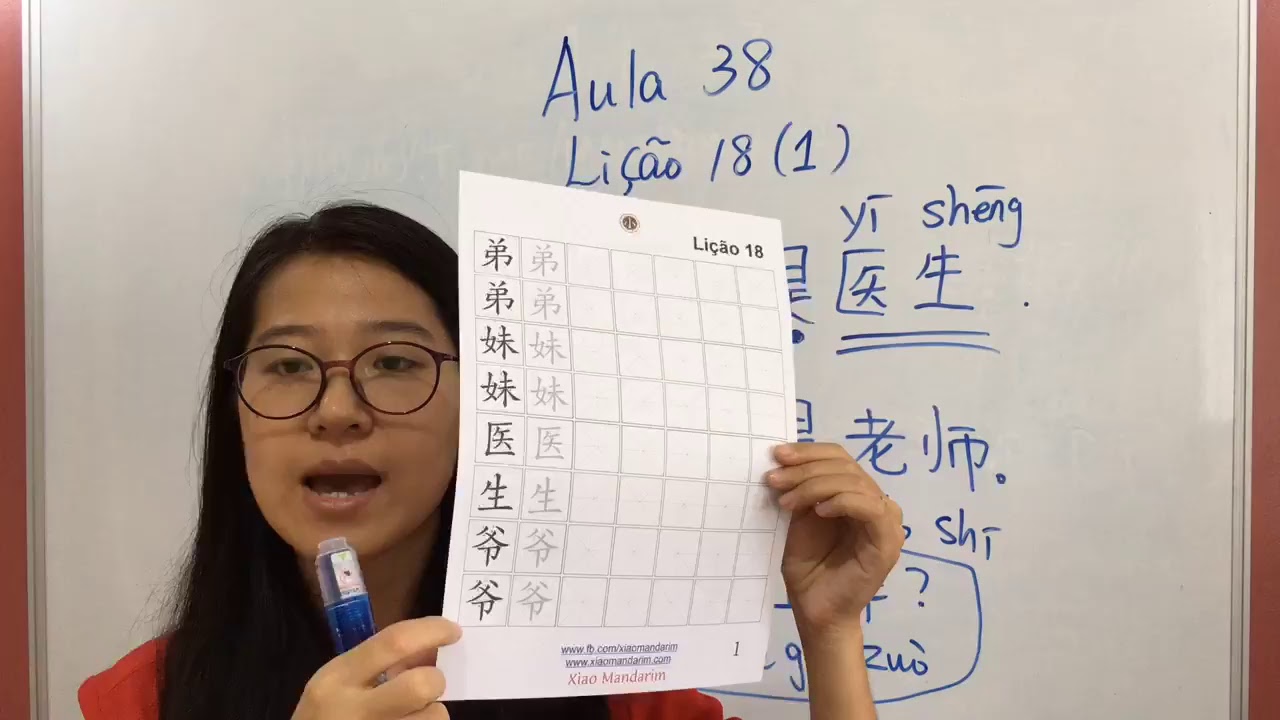 Aula 38
Lição 18 (1)
yī shēng
医生.
老师。
shī
?
zuò
Lição 18
弟 弟
弟 弟
妹 妹
妹 妹
医 医
生 生
爷 爷
爷 爷
www.fb.com/xiaomandarim
www.xiaomandarim.com
Xiao Mandarim
1